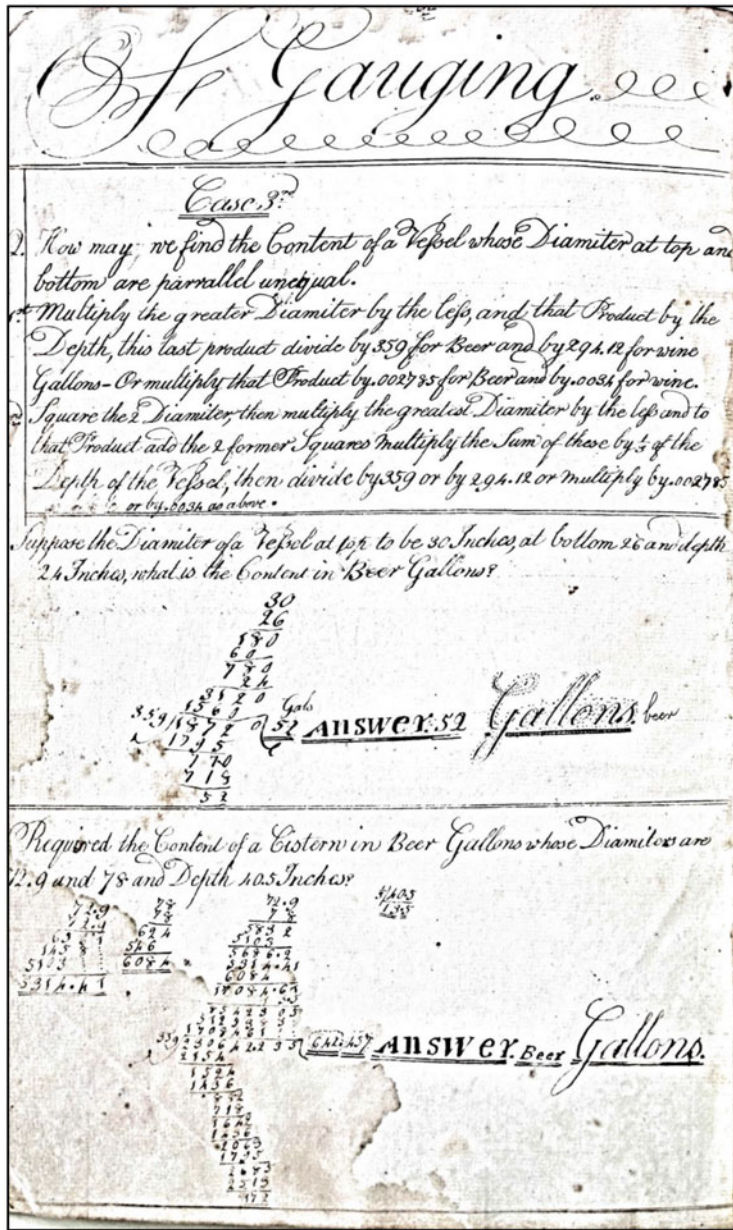 Of Gauging.
Case 3rd
Q. How may we find the Content of a Vessel whose Diamiter at top and
bottom are parrallel unequal.
1st Multiply the greater Diamiter by the less, and that Product by the
Depth, this last product divide by 359 for Beer and by 294.12 for wine
Gallons - Or multiply that Product by .002785 for Beer and by .0034 for wine.
Square the 2 Diamiter, then multiply the greatest Diamiter by the less and to
that Product add the 2 former Squares multiply the Sum of these by ⅓ of the
Depth of the Vessel, then divide by 359 or by 294.12 or multiply by .002785
or by .0034 as above.
Suppose the Diamiter of a Vessel at top to be 30 Inches, at bottom 26 and depth
24 Inches, what is the Content in Beer Gallons?
30
26
180
60
780
24
3120
1560 Gals
359)18720(52 Answer. 52 Gallons. beer
1795
770
718
52
Required the Content of a Cistern in Beer Gallons whose Diamitors are
72.9 and 78 and Depth 40.5 Inches?
72.9 78 72.9 3)40.5
72.9 78 78 13.5
656 1 624 583 2
1458 546 5103
5103 6084 5686.2
5314.41 5314.41
6084
17084.61
13.5
359 (642.457 Answer. Beer Gallons.
2154
1524
1436
882
718
1436
1795
2513
172